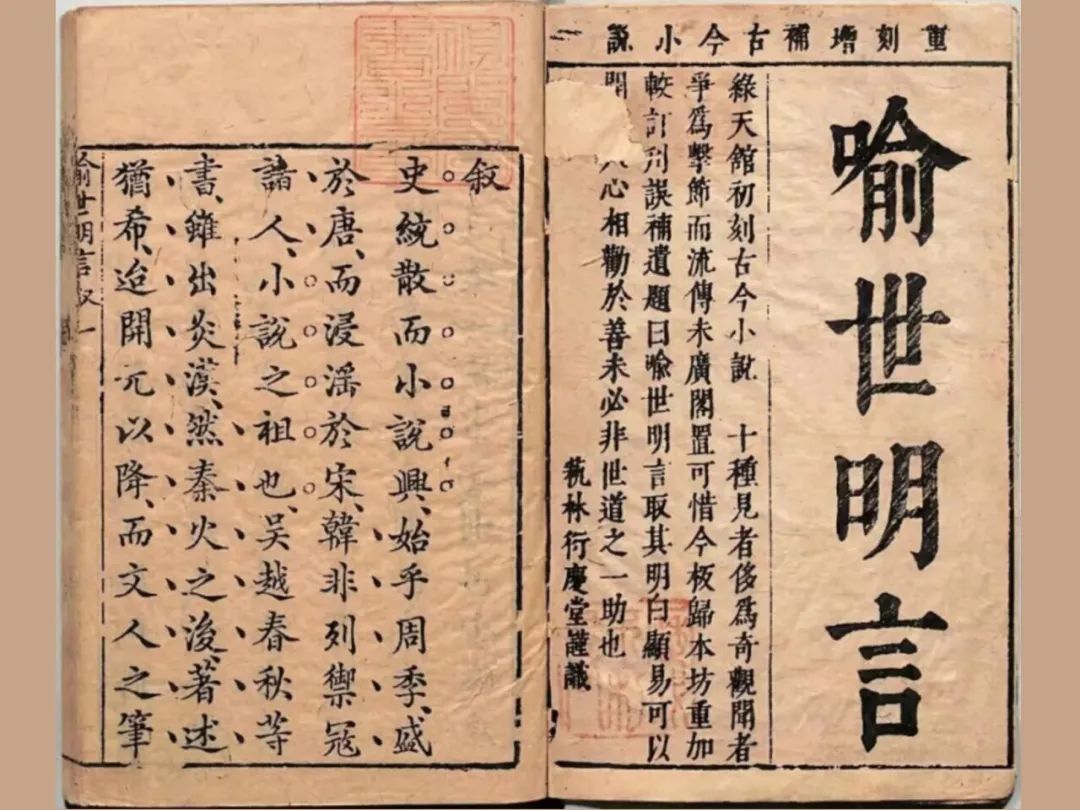 重刻增補古今小說
喻世明言
綠天館初刻古今小說　十種見者侈爲奇觀聞者
爭爲擊節而流傳未廣閣置可惜今板歸本坊重加
較訂刊誤補遺題曰喻世明言取其明白顯易可以
心相勸於善未必非世道之一助也
萟林衍慶堂謹識
叙
史統散而小說興、始乎周季、盛
於唐、而浸淫於宋、韓非列禦寇
諸人、小說之祖也、吳越春秋等
書、雖出炎漢、然秦火之後、著述
猶希、迨開元以降、而文人之筆
喻世明言叙 一